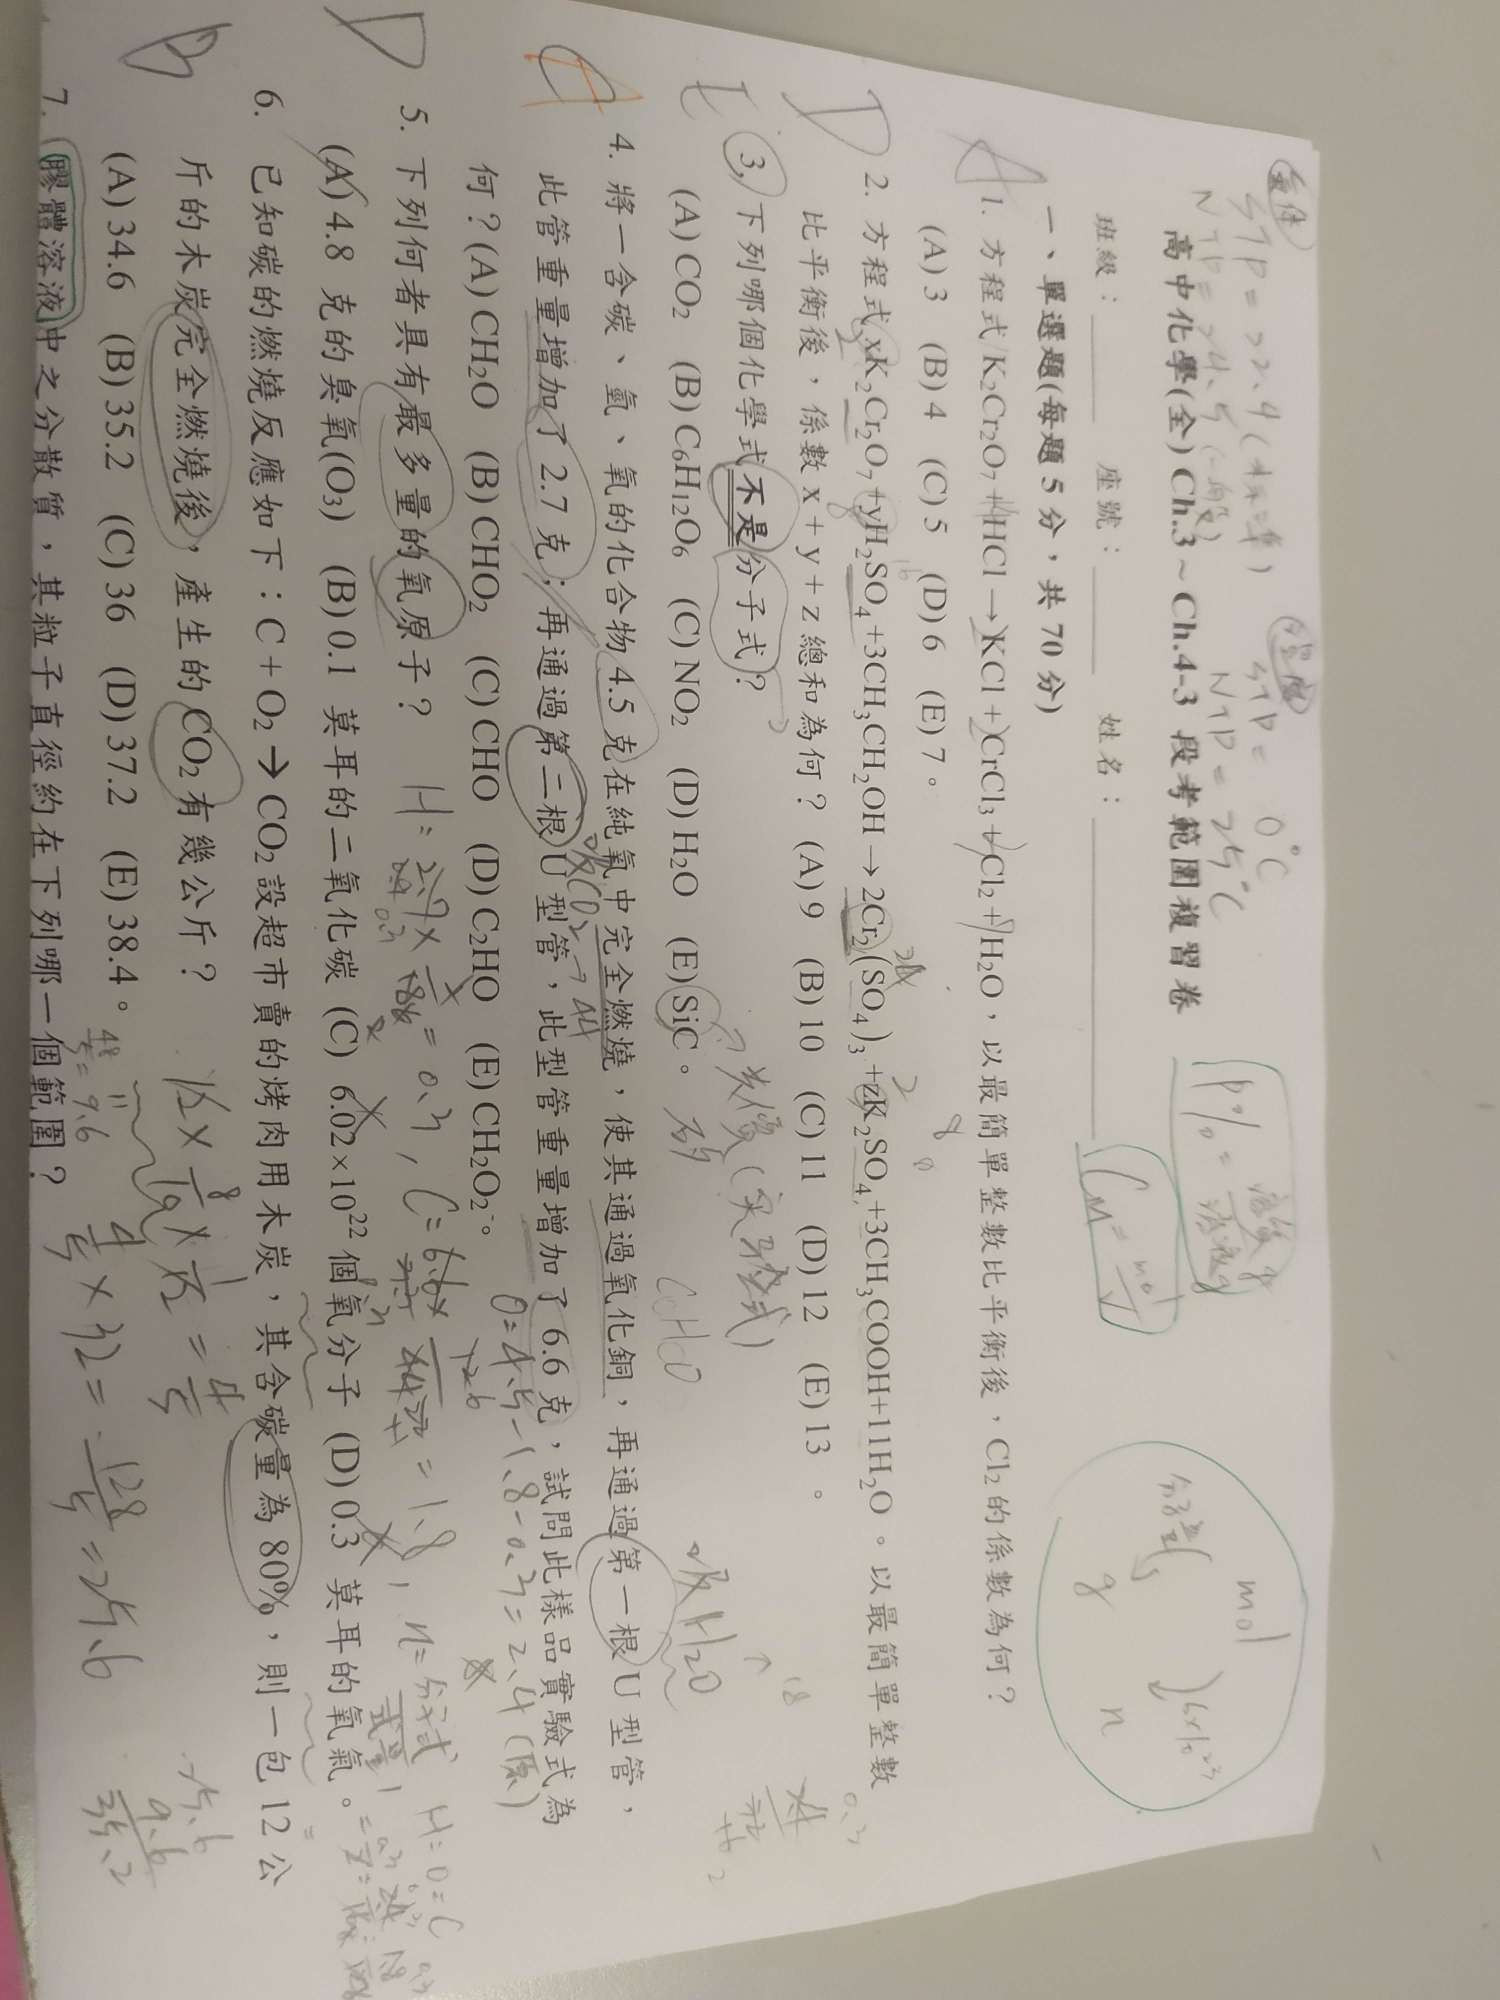 氣體
STP = 22.4 (標準)
NTP = 24.5 (一般)
STP = 0°C
NTP = 25°C
P% = 溶質g / 溶液g
CM = mol / V
mol
分子量
g
n
6×10²³
高中化學(全) Ch.3~Ch.4-3 段考範圍複習卷
班級:______ 座號:______ 姓名:____________
一、單選題(每題 5 分,共 70 分)
A 1. 方程式 K₂Cr₂O₇ + HCl → KCl + CrCl₃ + Cl₂ + H₂O,以最簡單整數比平衡後,Cl₂ 的係數為何?
(A) 3 (B) 4 (C) 5 (D) 6 (E) 7。
D 2. 方程式 xK₂Cr₂O₇+yH₂SO₄+3CH₃CH₂OH → 2Cr₂(SO₄)₃ +zK₂SO₄+3CH₃COOH+11H₂O。以最簡單整數
比平衡後,係數 x + y + z 總和為何? (A) 9 (B) 10 (C) 11 (D) 12 (E) 13 。
E 3. 下列哪個化學式不是分子式?
(A) CO₂ (B) C₆H₁₂O₆ (C) NO₂ (D) H₂O (E) SiC。
(實驗式)
吸H₂O
A 4. 將一含碳、氫、氧的化合物 4.5 克在純氧中完全燃燒,使其通過氧化銅,再通過第一根 U 型管,
吸CO₂→44
此管重量增加了 2.7 克;再通過第二根 U 型管,此型管重量增加了 6.6 克,試問此樣品實驗式為
何?(A) CH₂O (B) CHO₂ (C) CHO (D) C₂HO (E) CH₂O₂。
O=4.5-1.8-0.3=2.4(原)
D 5. 下列何者具有最多量的氧原子?
(A) 4.8 克的臭氧(O₃) (B) 0.1 莫耳的二氧化碳 (C) 6.02×10²² 個氧分子 (D) 0.3 莫耳的氧氣。
B 6. 已知碳的燃燒反應如下:C + O₂ → CO₂ 設超市賣的烤肉用木炭,其含碳量為 80%,則一包 12 公
斤的木炭完全燃燒後,產生的 CO₂ 有幾公斤?
(A) 34.6 (B) 35.2 (C) 36 (D) 37.2 (E) 38.4。
48/5=9.6
4/5 × 32 = 128/5 = 25.6
25.6
9.6
35.2
7. 膠體溶液中之分散質,其粒子直徑約在下列哪一個範圍?